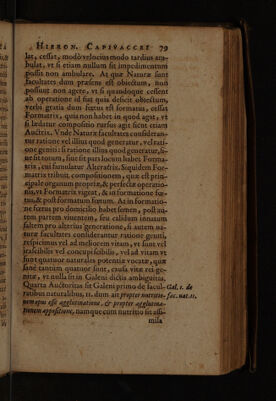 HIERON. CAPIVACCEI 79
lat, cessat, modò velocius modo tardius am-
bulat, vt si etiam nullum sit impedimentum
possit non ambulare. At quæ Naturæ sunt
facultates dum præsens est obiectum, non
possunt non agere, vt si quandoque cessent
ab operatione id fiat quia deficit obiectum,
verbi gratia dum fœtus est formatus, cessat
Formatrix, quia non habet in quod agat, vt
si lædatur compositio rursus agit sicut etiam
Auctrix. Vnde Naturæ facultates consideran-
tur ratione vel illius quod generatur, vel rati-
one geniti: si ratione illius quod generatur,
ue sit totum, siue sit pars locum habet Forma-
trix, cui famulatur Alteratrix. Siquidem For-
matrix tribuit compositionem, quæ est prin-
cipale organum propriæ, & perfectæ operatio-
nis, vt Formatrix vigeat, & in formatione fœ-
tus, & post formatum fœtum. At in formatio-
ne fœtus pro domicilio habet semen, post au-
tem partem viuentem, seu calidum innatum
saltem pro alterius generatione, si autem na-
turæ facultates considerantur ratione geniti,
respicimus vel ad meliorem vitam, vt sunt vel
irascibilis vel concupiscibilis, vel ad vitam vt
sunt quatuor naturales potentiæ vocatæ, quæ
sanè tantùm quatuor sunt, causa vitæ rei ge-
nitæ, vt nulla sit in Galeni dictis ambiguitas.
Quarta Auctoritas sit Galeni primo de facul- Gal. 1. de
tatibus naturalibus, 11. dum ait propter nutritio- fac. nat. 11.
nem opus esse agglutinatione, & propter agglutina-
tionem appositione, namque cum nutritio sit assi-
mila